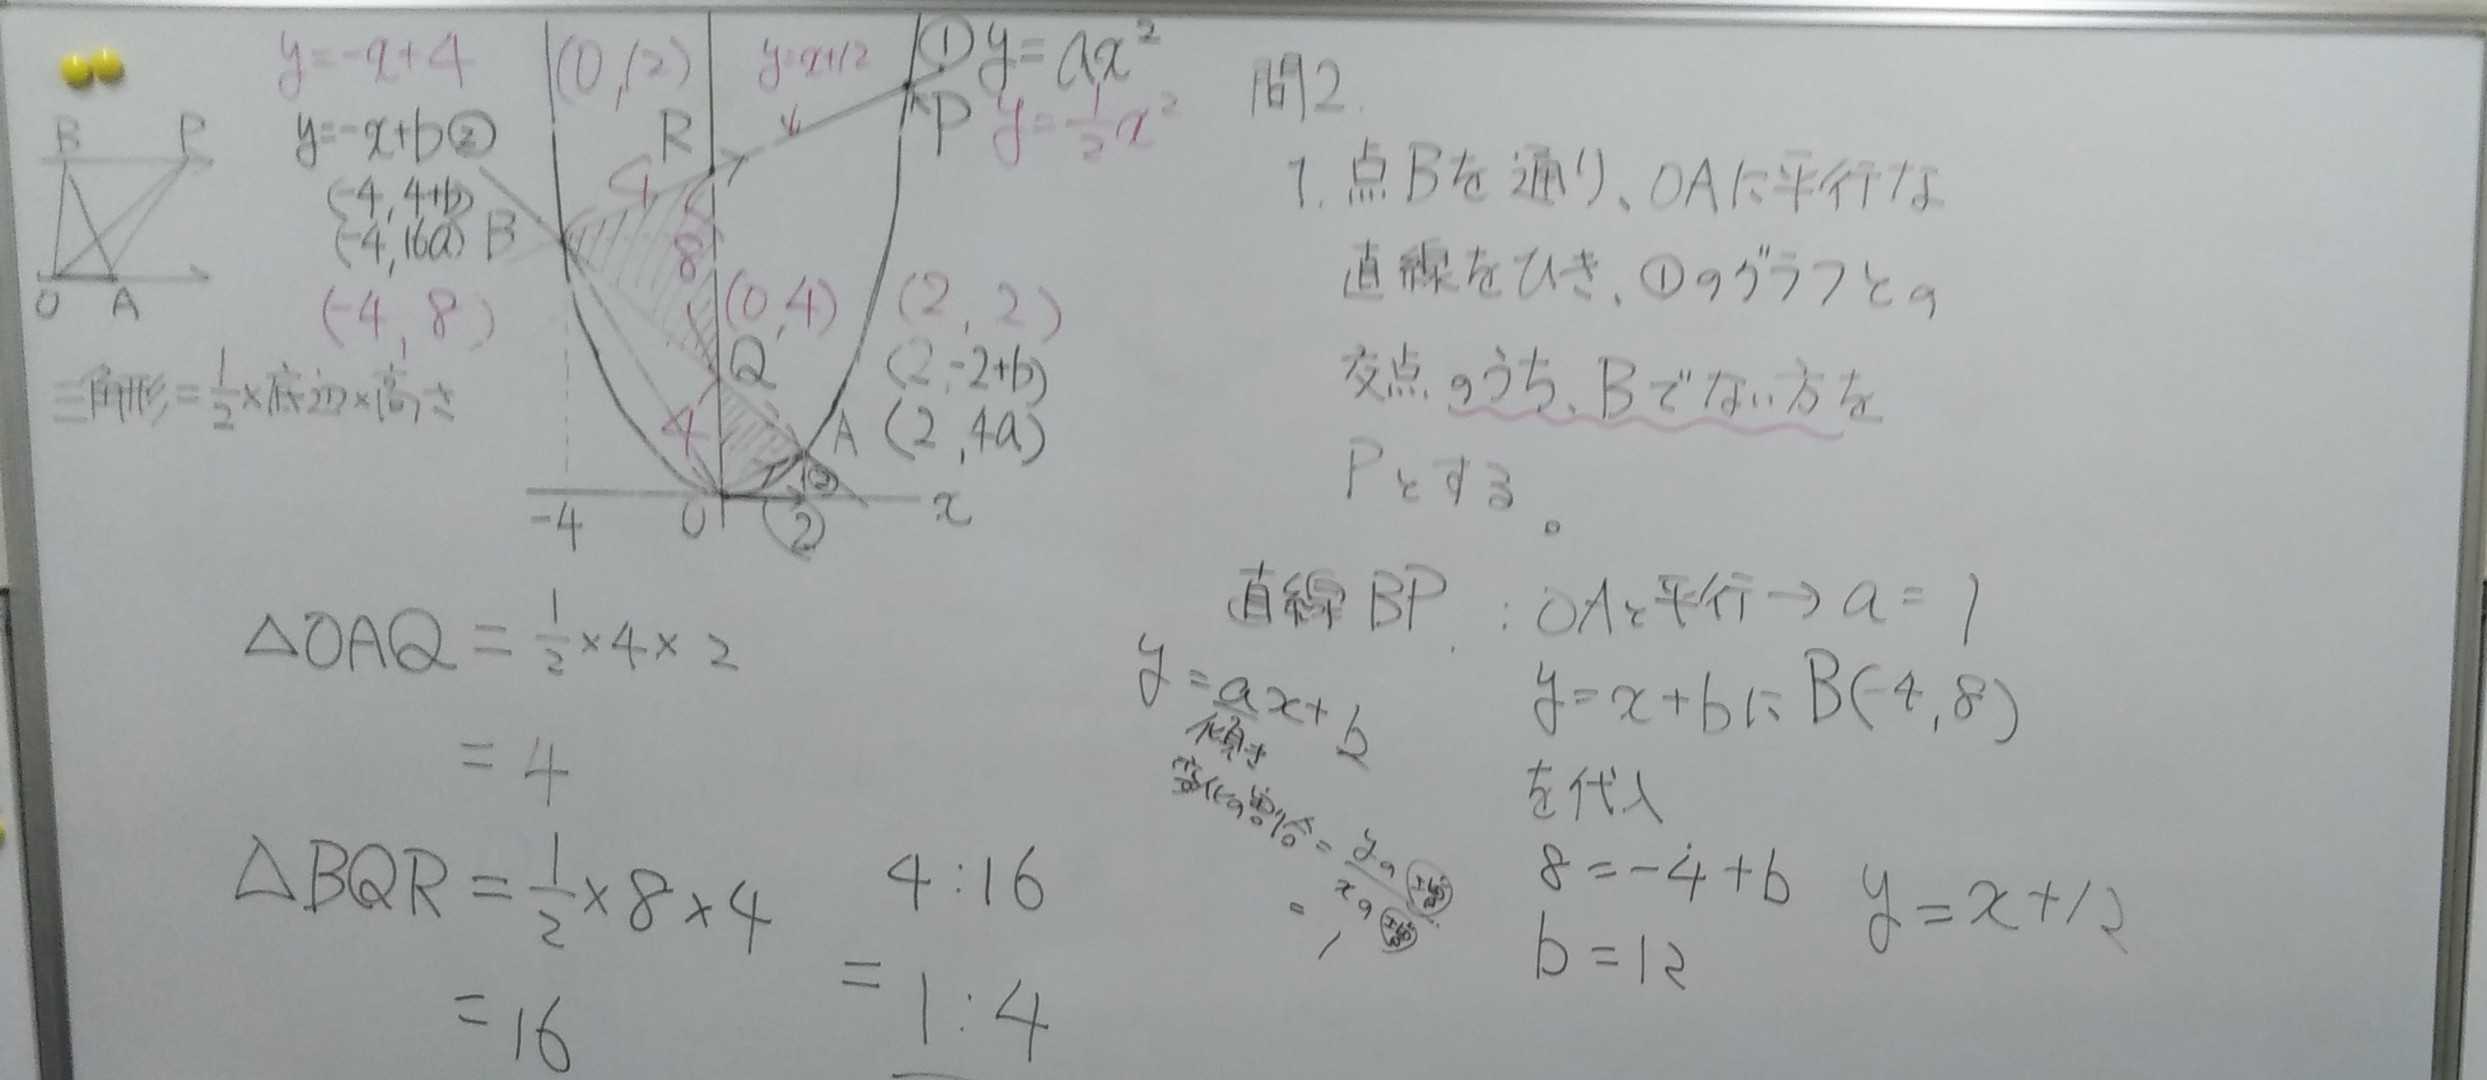 y=-x+4
y=-x+b②
(-4, 4+b)
(-4, 16a)
(-4, 8)
B
P
O
A
三角形=1/2×底辺×高さ
(0,12)
y=x+12
①y=ax²
y=1/2x²
R
P
B
4
8
(0,4)
(2, 2)
Q
(2,-2+b)
4
A
(2,4a)
②
-4
O
2
x
△OAQ=1/2×4×2
=4
△BQR=1/2×8×4
=16
4:16
=1:4
問2.
1. 点Bを通り、OAに平行な
直線をひき、①のグラフとの
交点のうち、Bでない方を
Pとする。
直線BP : OAと平行→a=1
y=ax+b
傾き
変化の割合=yの増/xの増
=1
y=x+bにB(-4,8)
を代入
8=-4+b
b=12
y=x+12